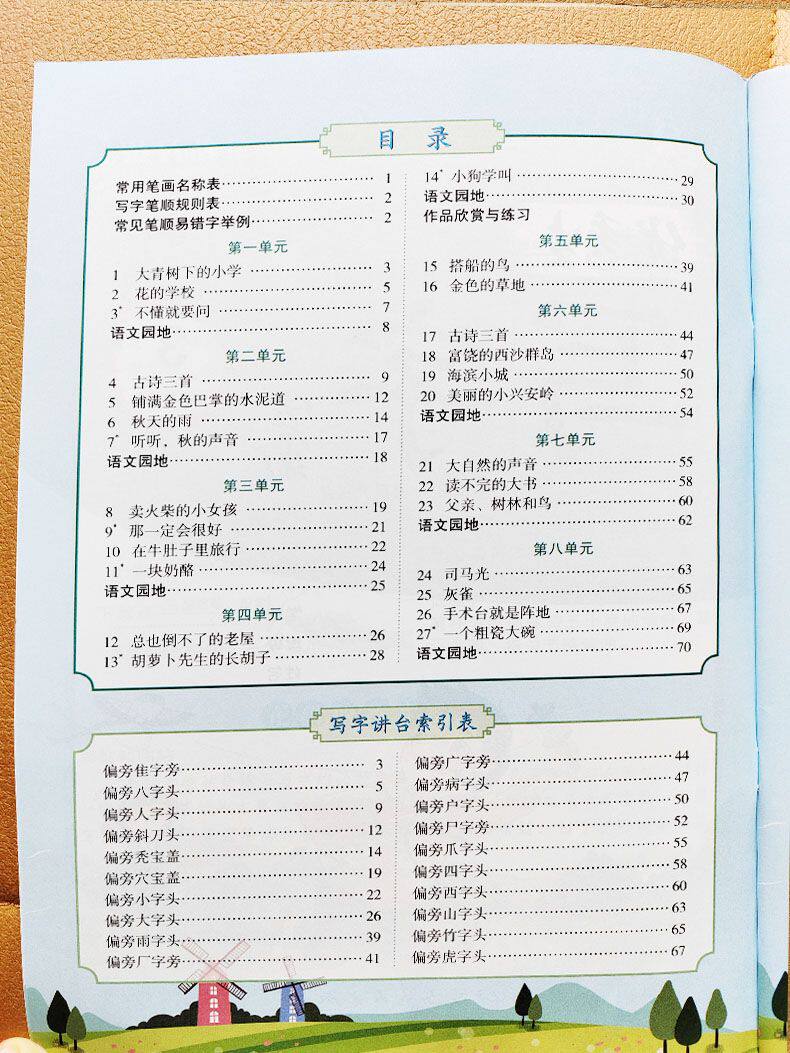 目 录
常用笔画名称表 1
写字笔顺规则表 2
常见笔顺易错字举例 2
第一单元
1 大青树下的小学 3
2 花的学校 5
3* 不懂就要问 7
语文园地 8
第二单元
4 古诗三首 9
5 铺满金色巴掌的水泥道 12
6 秋天的雨 14
7* 听听，秋的声音 17
语文园地 18
第三单元
8 卖火柴的小女孩 19
9* 那一定会很好 21
10 在牛肚子里旅行 22
11* 一块奶酪 24
语文园地 25
第四单元
12 总也倒不了的老屋 26
13* 胡萝卜先生的长胡子 28
14* 小狗学叫 29
语文园地 30
作品欣赏与练习
第五单元
15 搭船的鸟 39
16 金色的草地 41
第六单元
17 古诗三首 44
18 富饶的西沙群岛 47
19 海滨小城 50
20 美丽的小兴安岭 52
语文园地 54
第七单元
21 大自然的声音 55
22 读不完的大书 58
23 父亲、树林和鸟 60
语文园地 62
第八单元
24 司马光 63
25 灰雀 65
26 手术台就是阵地 67
27* 一个粗瓷大碗 69
语文园地 70
写字讲台索引表
偏旁隹字旁 3
偏旁八字头 5
偏旁人字头 9
偏旁斜刀头 12
偏旁秃宝盖 14
偏旁穴宝盖 19
偏旁小字头 22
偏旁大字头 26
偏旁雨字头 39
偏旁厂字旁 41
偏旁广字旁 44
偏旁病字头 47
偏旁户字头 50
偏旁尸字旁 52
偏旁爪字头 55
偏旁四字头 58
偏旁西字头 60
偏旁山字头 63
偏旁竹字头 65
偏旁虎字头 67